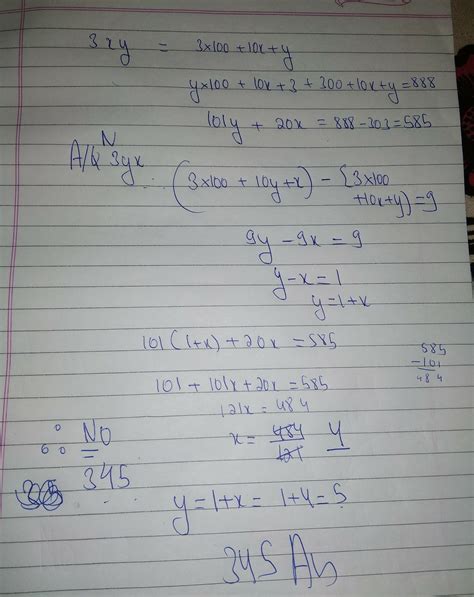 3xy = 3×100 + 10x + y
y×100 + 10x + 3 + 300 + 10x + y = 888
101y + 20x = 888 - 303 = 585
N
A/Q 3yx
(3×100 + 10y + x) - [3×100
+10x + y) = 9
9y - 9x = 9
y - x = 1
y = 1 + x
101(1+x) + 20x = 585
585
- 101
484
101 + 101x + 20x = 585
121x = 484
x = 484/121 4
∴ No
345
y = 1 + x = 1 + 4 = 5
345 Ans